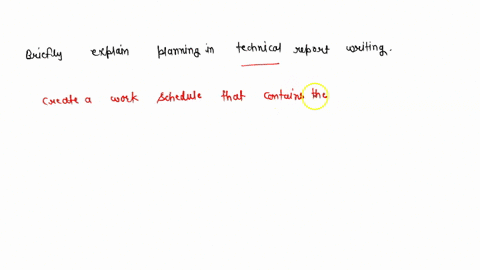 Briefly explain planning in technical report writing.
create a work schedule that contains the